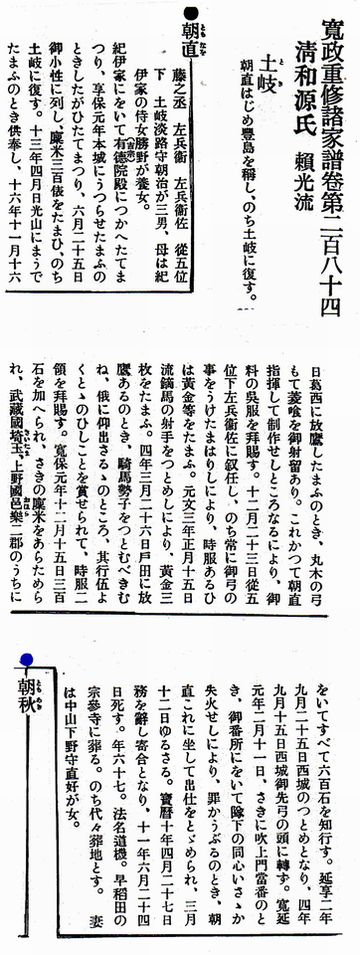 寛政重修諸家譜卷第二百八十四
清和源氏 賴光流
土岐
とき
朝直はじめ豊島を稱し、のち土岐に復す。
朝直
とも なを
藤之丞 左兵衞 左兵衞佐 從五位
下 土岐淡路守朝治が三男、母は紀
伊家の侍女勝野が養女。
紀伊家にをいて有德院殿につかへたてま
つり、享保元年本城にうつらせたまふの
ときしたがひたてまつり、六月二十五日
御小性に列し、廩米三百俵をたまひ、のち
土岐に復す。十三年四月日光山にまうで
たまふのとき供奉し、十六年十一月十六
日葛西に放鷹したまふのとき、丸木の弓
もて菱喰を御射留あり。これかつて朝直
指揮して制作せしところなるにより、御
料の呉服を拜賜す。十二月二十三日從五
位下左兵衞佐に叙任し、のち常に御弓の
事をうけたまはりしにより、時服あるひ
は黄金等をたまふ。元文三年正月十五日
流鏑馬の射手をつとめしにより、黄金三
枚をたまふ。四年三月二十六日戸田に放
鷹あるのとき、騎馬勢子をつとむべきむ
ね、俄に仰出さるゝのところ、其行伍よ
くとゝのひしことを賞せられて、時服二
領を拜賜す。寛保元年十二月十五日三百
石を加へられ、さきの廩米をあらためら
れ、武藏國埼玉、上野國邑樂二郡のうちに
をいてすべて六百石を知行す。延享二年
九月二十五日西城のつとめとなり、四年
九月十五日西城御先弓の頭に轉ず。寛延
元年二月十一日、さきに吹上門當番のと
き、御番所にをいて隊下の同心いさゝか
失火せしにより、罪かうぶるのとき、朝
直これに坐して出仕をとゞめられ、三月
十二日ゆるさる。寶曆十年四月二十七日
務を辭し寄合となり、十一年六月二十四
日死す。年六十七。法名道機。早稻田の
宗參寺に葬る。のち代々葬地とす。 妻
は中山下野守直好が女。
朝秋
とも あき